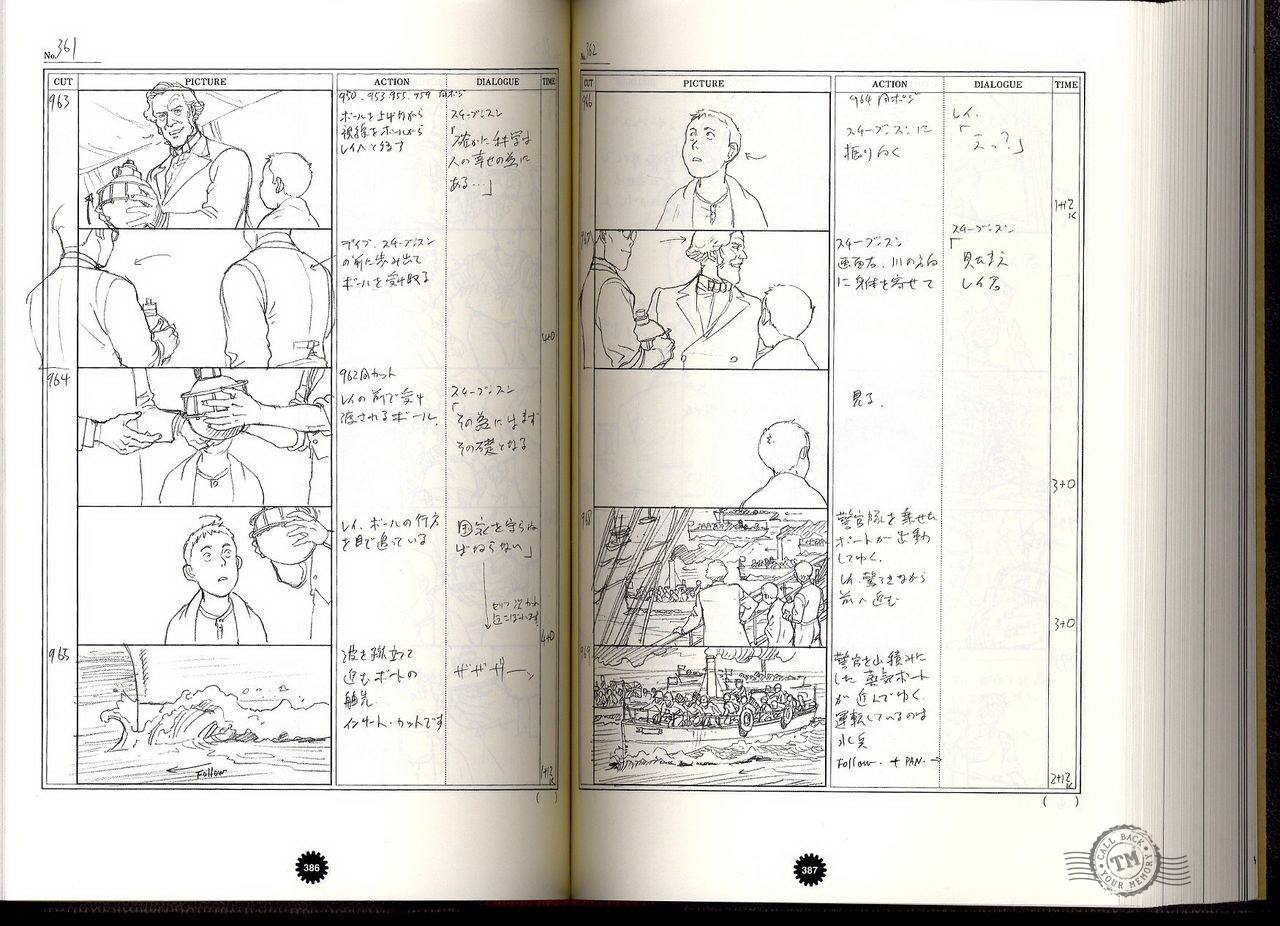 No. 361
CUT
PICTURE
ACTION
DIALOGUE
TIME
963
950.953.955.959 同ポジ
ボールを上げながら
視線をボールから
レイへと移す
スチーブンスン
「確かに科学は
人の幸せの為に
ある…」
デイブ、スチーブンスン
の前に歩み出て
ボールを受け取る
4+0
964
962同カット
レイの前で受け
渡されるボール。
スチーブンスン
「その為にはまず
その礎となる
レイ、ボールの行方
を目で追っている
国家を守らね
ばならない」
4+0
965
波を蹴立てて
進むボートの
舳先
インサート・カットです
ザザザーッ
Follow
1+12
K
( )
386
No. 362
CUT
PICTURE
ACTION
DIALOGUE
TIME
966
964 同ポジ
スチーブンスンに
振り向く
レイ.
「えっ?」
1+12
K
967
スチーブンスン
画面右、川の方向
に身体を寄せて
スチーブンスン
「見たまえ
レイ君
見る.
3+0
968
警官隊を乗せた
ボートが出動
してゆく.
レイ、驚きながら
前へ進む
3+0
969
警官を山積みに
した蒸気ボート
が進んでゆく.
運転しているのは
水兵
Follow. + PAN. →
2+12
K
( )
387
CALL BACK
TM
YOUR MEMORY